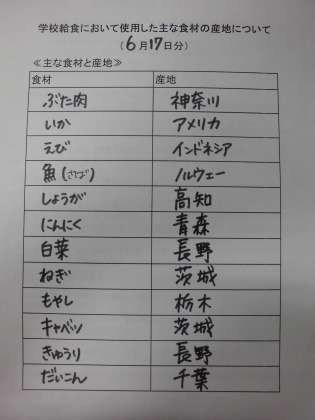 学校給食において使用した主な食材の産地について
(6月17日分)
≪主な食材と産地≫
食材 産地
ぶた肉 神奈川
いか アメリカ
えび インドネシア
魚(さば) ノルウェー
しょうが 高知
にんにく 青森
白菜 長野
ねぎ 茨城
もやし 栃木
キャベツ 茨城
きゅうり 長野
だいこん 千葉